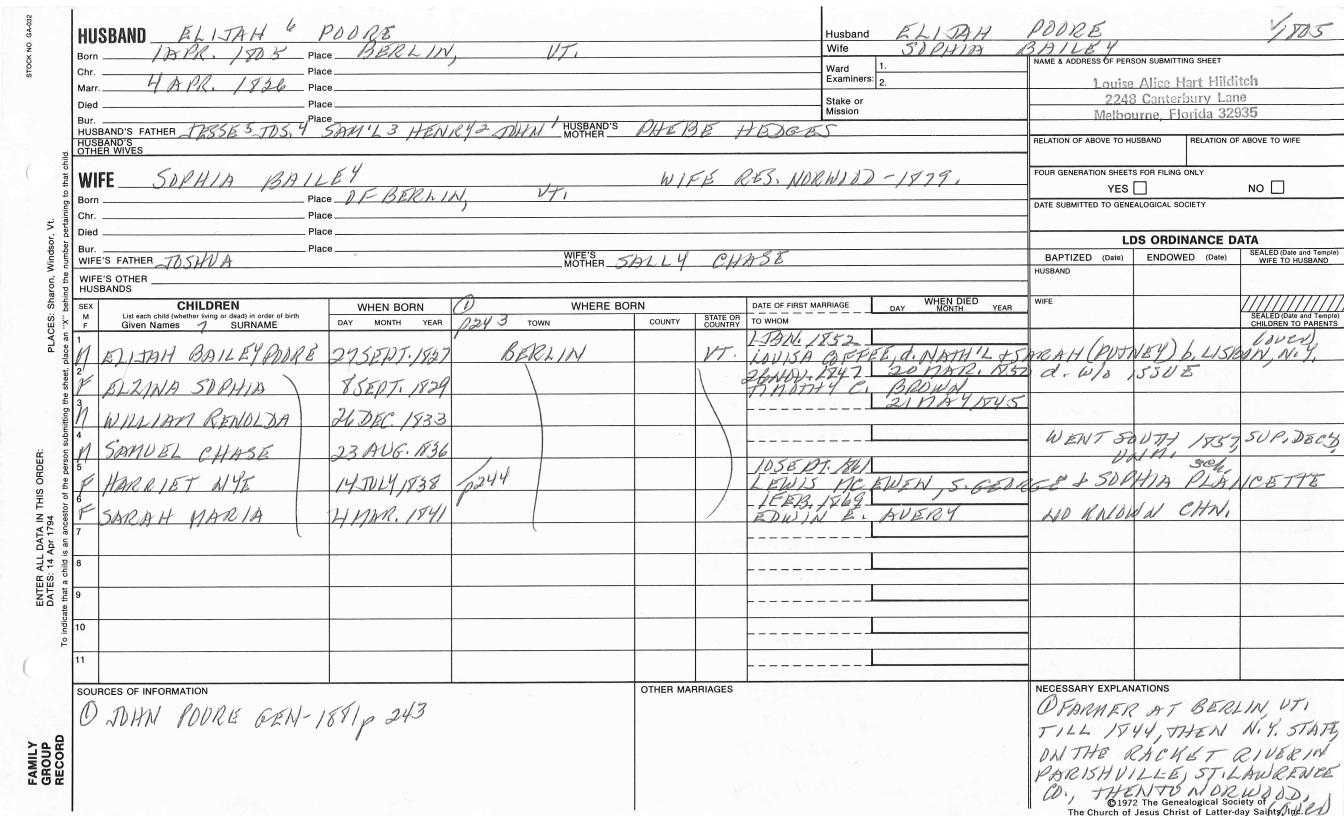 STOCK NO. GA-032
HUSBAND ELIJAH 6 POORE
Born 1 APR. 1805 Place BERLIN, VT.
Chr. Place
Marr. 4 APR. 1826 Place
Died Place
Bur. Place
HUSBAND'S FATHER JESSE 5 JOS. 4 SAM'L 3 HENRY 2 JOHN 1 HUSBAND'S MOTHER PHEBE HEDGES
HUSBAND'S OTHER WIVES
Husband ELIJAH POORE 1/1805
Wife SOPHIA BAILEY
Ward Examiners: 1.
2.
Stake or Mission
NAME & ADDRESS OF PERSON SUBMITTING SHEET
Louise Alice Hart Hilditch
2248 Canterbury Lane
Melbourne, Florida 32935
RELATION OF ABOVE TO HUSBAND RELATION OF ABOVE TO WIFE
FOUR GENERATION SHEETS FOR FILING ONLY
YES NO
DATE SUBMITTED TO GENEALOGICAL SOCIETY
WIFE SOPHIA BAILEY WIFE RES. NORWOOD - 1879.
Born Place OF BERLIN, VT.
Chr. Place
Died Place
Bur. Place
WIFE'S FATHER JOSHUA WIFE'S MOTHER SALLY CHASE
WIFE'S OTHER HUSBANDS
LDS ORDINANCE DATA
BAPTIZED (Date) ENDOWED (Date) SEALED (Date and Temple) WIFE TO HUSBAND
HUSBAND
WIFE
SEALED (Date and Temple) CHILDREN TO PARENTS
SEX M F CHILDREN WHEN BORN (1) WHERE BORN DATE OF FIRST MARRIAGE WHEN DIED
List each child (whether living or dead) in order of birth DAY MONTH YEAR
Given Names 7 SURNAME DAY MONTH YEAR p243 TOWN COUNTY STATE OR COUNTRY TO WHOM
1 JAN. 1852 (over)
1 M ELIJAH BAILEY POORE 27 SEPT. 1827 BERLIN VT. LOUISA COFFEE, d. NATH'L & SARAH (PUTNEY) b. LISBON, N.Y.
26 NOV. 1847 20 MAR. 1852 d. w/o ISSUE
2 F ELZINA SOPHIA 8 SEPT. 1829 TIMOTHY C. BROWN
3 M WILLIAM RENOLDA 26 DEC. 1833 21 MAY 1845
4 M SAMUEL CHASE 23 AUG. 1836 WENT SOUTH 1857, SUP. DEC'D,
UNM.
10 SEPT. 1861
5 F HARRIET NYE 14 JULY 1838 p244 LEWIS MCEWEN, S. GEORGE & SOPHIA PLANCETTE
1 FEB. 1869
6 F SARAH MARIA 4 MAR. 1841 EDWIN E. AVERY NO KNOWN CHN.
7
8
9
10
11
SOURCES OF INFORMATION
(1) JOHN POORE GEN - 1881 p 243
OTHER MARRIAGES
NECESSARY EXPLANATIONS
(1) FARMER AT BERLIN, VT.
TILL 1844, THEN N.Y. STATE,
ON THE RACKET RIVER IN
PARISHVILLE, ST. LAWRENCE
CO., THEN TO NORWOOD,
(over)
©1972 The Genealogical Society of
The Church of Jesus Christ of Latter-day Saints, Inc.
PLACES: Sharon, Windsor, Vt.
ENTER ALL DATA IN THIS ORDER:
DATES: 14 Apr 1794
To indicate that a child is an ancestor of the person submitting the sheet, place an "X" behind the number pertaining to that child.
FAMILY
GROUP
RECORD